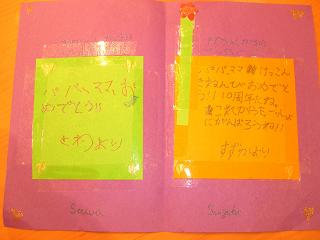 パパ、ママ、お
めでとう!!
さわより
パパ、ママ けっこん
きねんびおめでと
う!!10周年だね。
これからもいっしょ
にがんばろうね!!
すずかより
Sawa
Suzuka